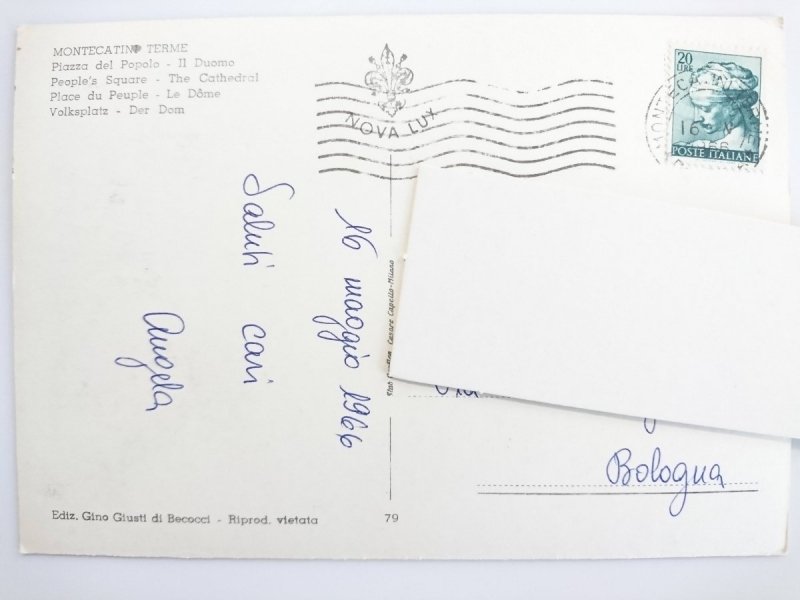 MONTECATINI TERME
Piazza del Popolo - Il Duomo
People's Square - The Cathedral
Place du Peuple - Le Dôme
Volksplatz - Der Dom
NOVA LUX
20
LIRE
POSTE ITALIANE
16 maggio 1966
Saluti cari
Angela
Cesare Capello-Milano
Bologna
Ediz. Gino Giusti di Becocci - Riprod. vietata
79